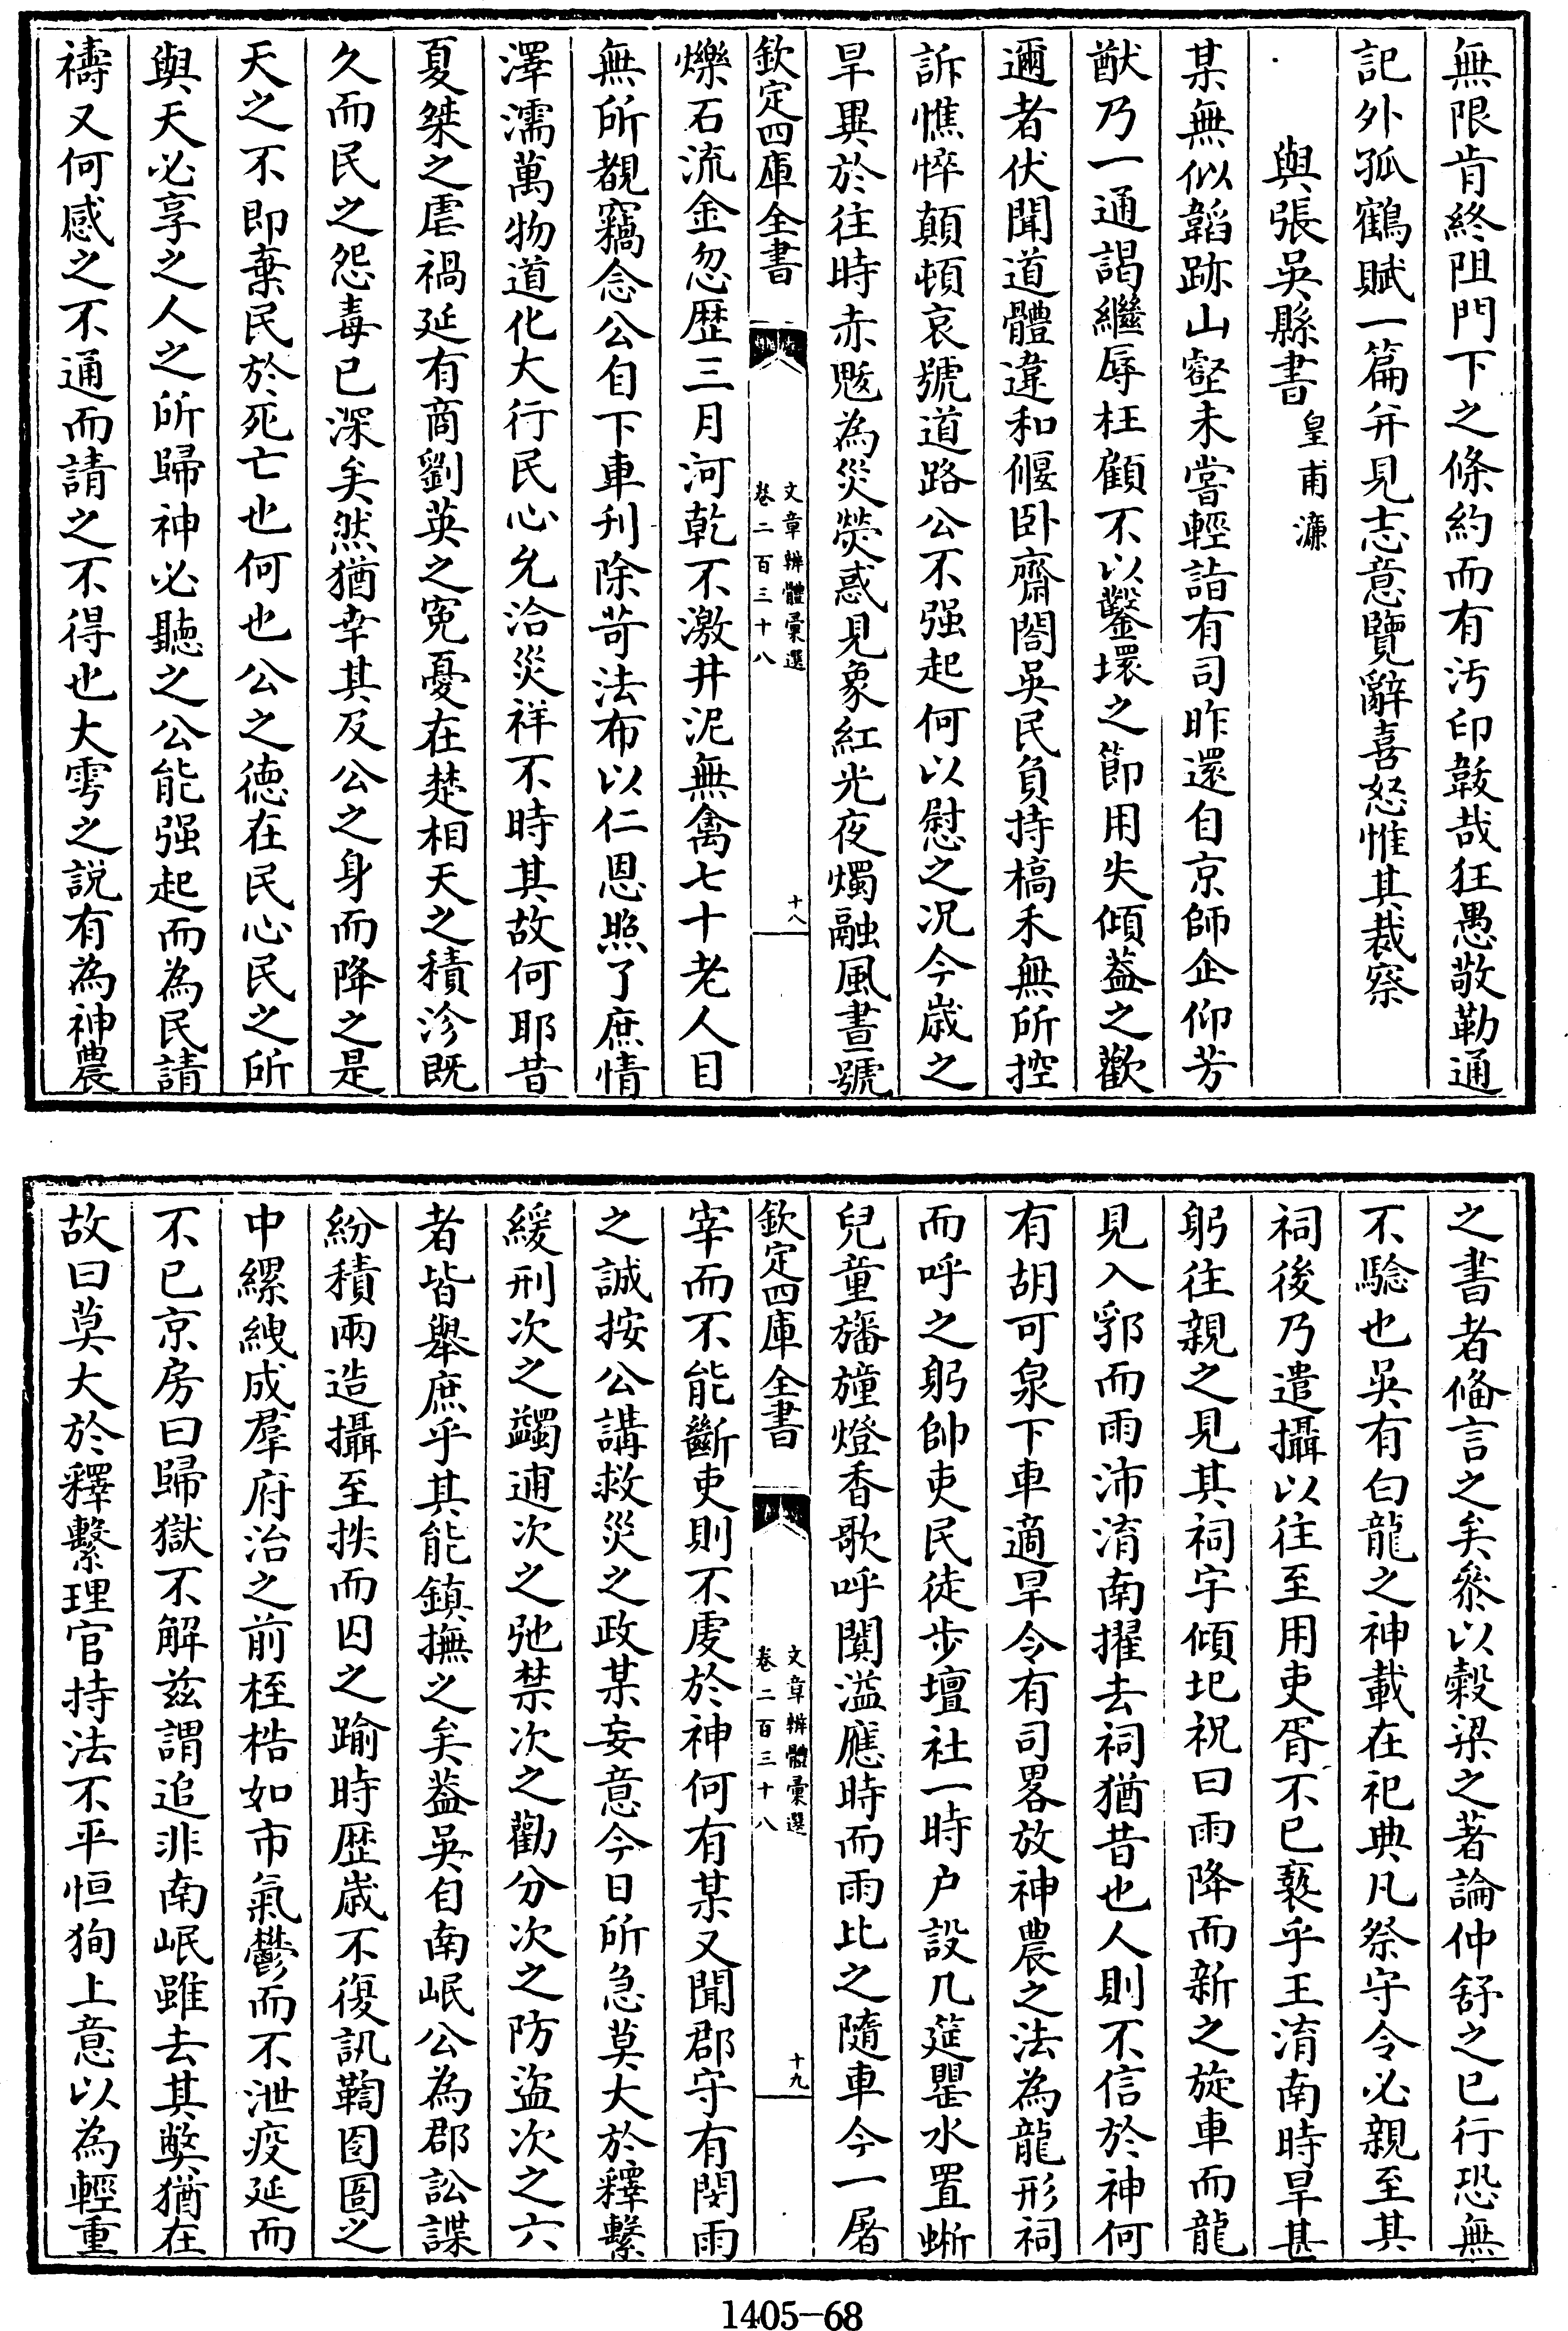 無限肯終阻門下之條約而有汚印韍哉狂愚敬勒通
記外孤鶴賦一篇弁見志意覽辭喜怒惟其裁察
與張吳縣書皇甫濂
某無似韜跡山壑未嘗輕詣有司昨還自京師企仰芳
猷乃一通謁繼辱枉顧不以鑿壞之節用失傾葢之歡
邇者伏聞道體違和偃卧齋閤吳民負持槁禾無所控
訴憔悴顛頓哀號道路公不强起何以慰之况今歲之
旱異於往時赤魃為災熒惑見象紅光夜燭融風晝號
欽定四庫全書
文章辨體彙選
卷二百三十八
十八
爍石流金忽歷三月河乾不激井泥無禽七十老人目
無所覩竊念公自下車刋除苛法布以仁恩照了庶情
澤濡萬物道化大行民心允洽災祥不時其故何耶昔
夏桀之虐禍延有商劉英之寃憂在楚相天之積沴既
久而民之怨毒已深矣然猶幸其及公之身而降之是
天之不即棄民於死亡也何也公之德在民心民之所
與天必享之人之所歸神必聽之公能强起而為民請
禱又何感之不通而請之不得也大雩之説有為神農
之書者俻言之矣叅以榖梁之著論仲舒之已行恐無
不騐也吳有白龍之神載在祀典凡祭守令必親至其
祠後乃遣攝以往至用吏胥不已䙝乎王淯南時旱甚
躬往親之見其祠宇傾圮祝曰雨降而新之旋車而龍
見入郛而雨沛淯南擢去祠猶昔也人則不信於神何
有胡可泉下車適旱令有司畧放神農之法為龍形祠
而呼之躬帥吏民徒步壇社一時户設几筵甖水置蜥
兒童旛幢燈香歌呼闐溢應時而雨比之隨車今一屠
欽定四庫全書
文章辨體彙選
卷二百三十八
十九
宰而不能斷吏則不䖍於神何有某又聞郡守有閔雨
之誠按公講救災之政某妄意今日所急莫大於釋繫
緩刑次之蠲逋次之弛禁次之勸分次之防盜次之六
者皆舉庶乎其能鎮撫之矣葢吳自南岷公為郡訟諜
紛積兩造攝至抶而囚之踰時歷歲不復訊鞫囹圄之
中縲絏成羣府治之前桎梏如市氣鬱而不泄疫延而
不已京房曰歸獄不解兹謂追非南岷雖去其獘猶在
故曰莫大於釋繫理官持法不平恒狥上意以為輕重
1405-68